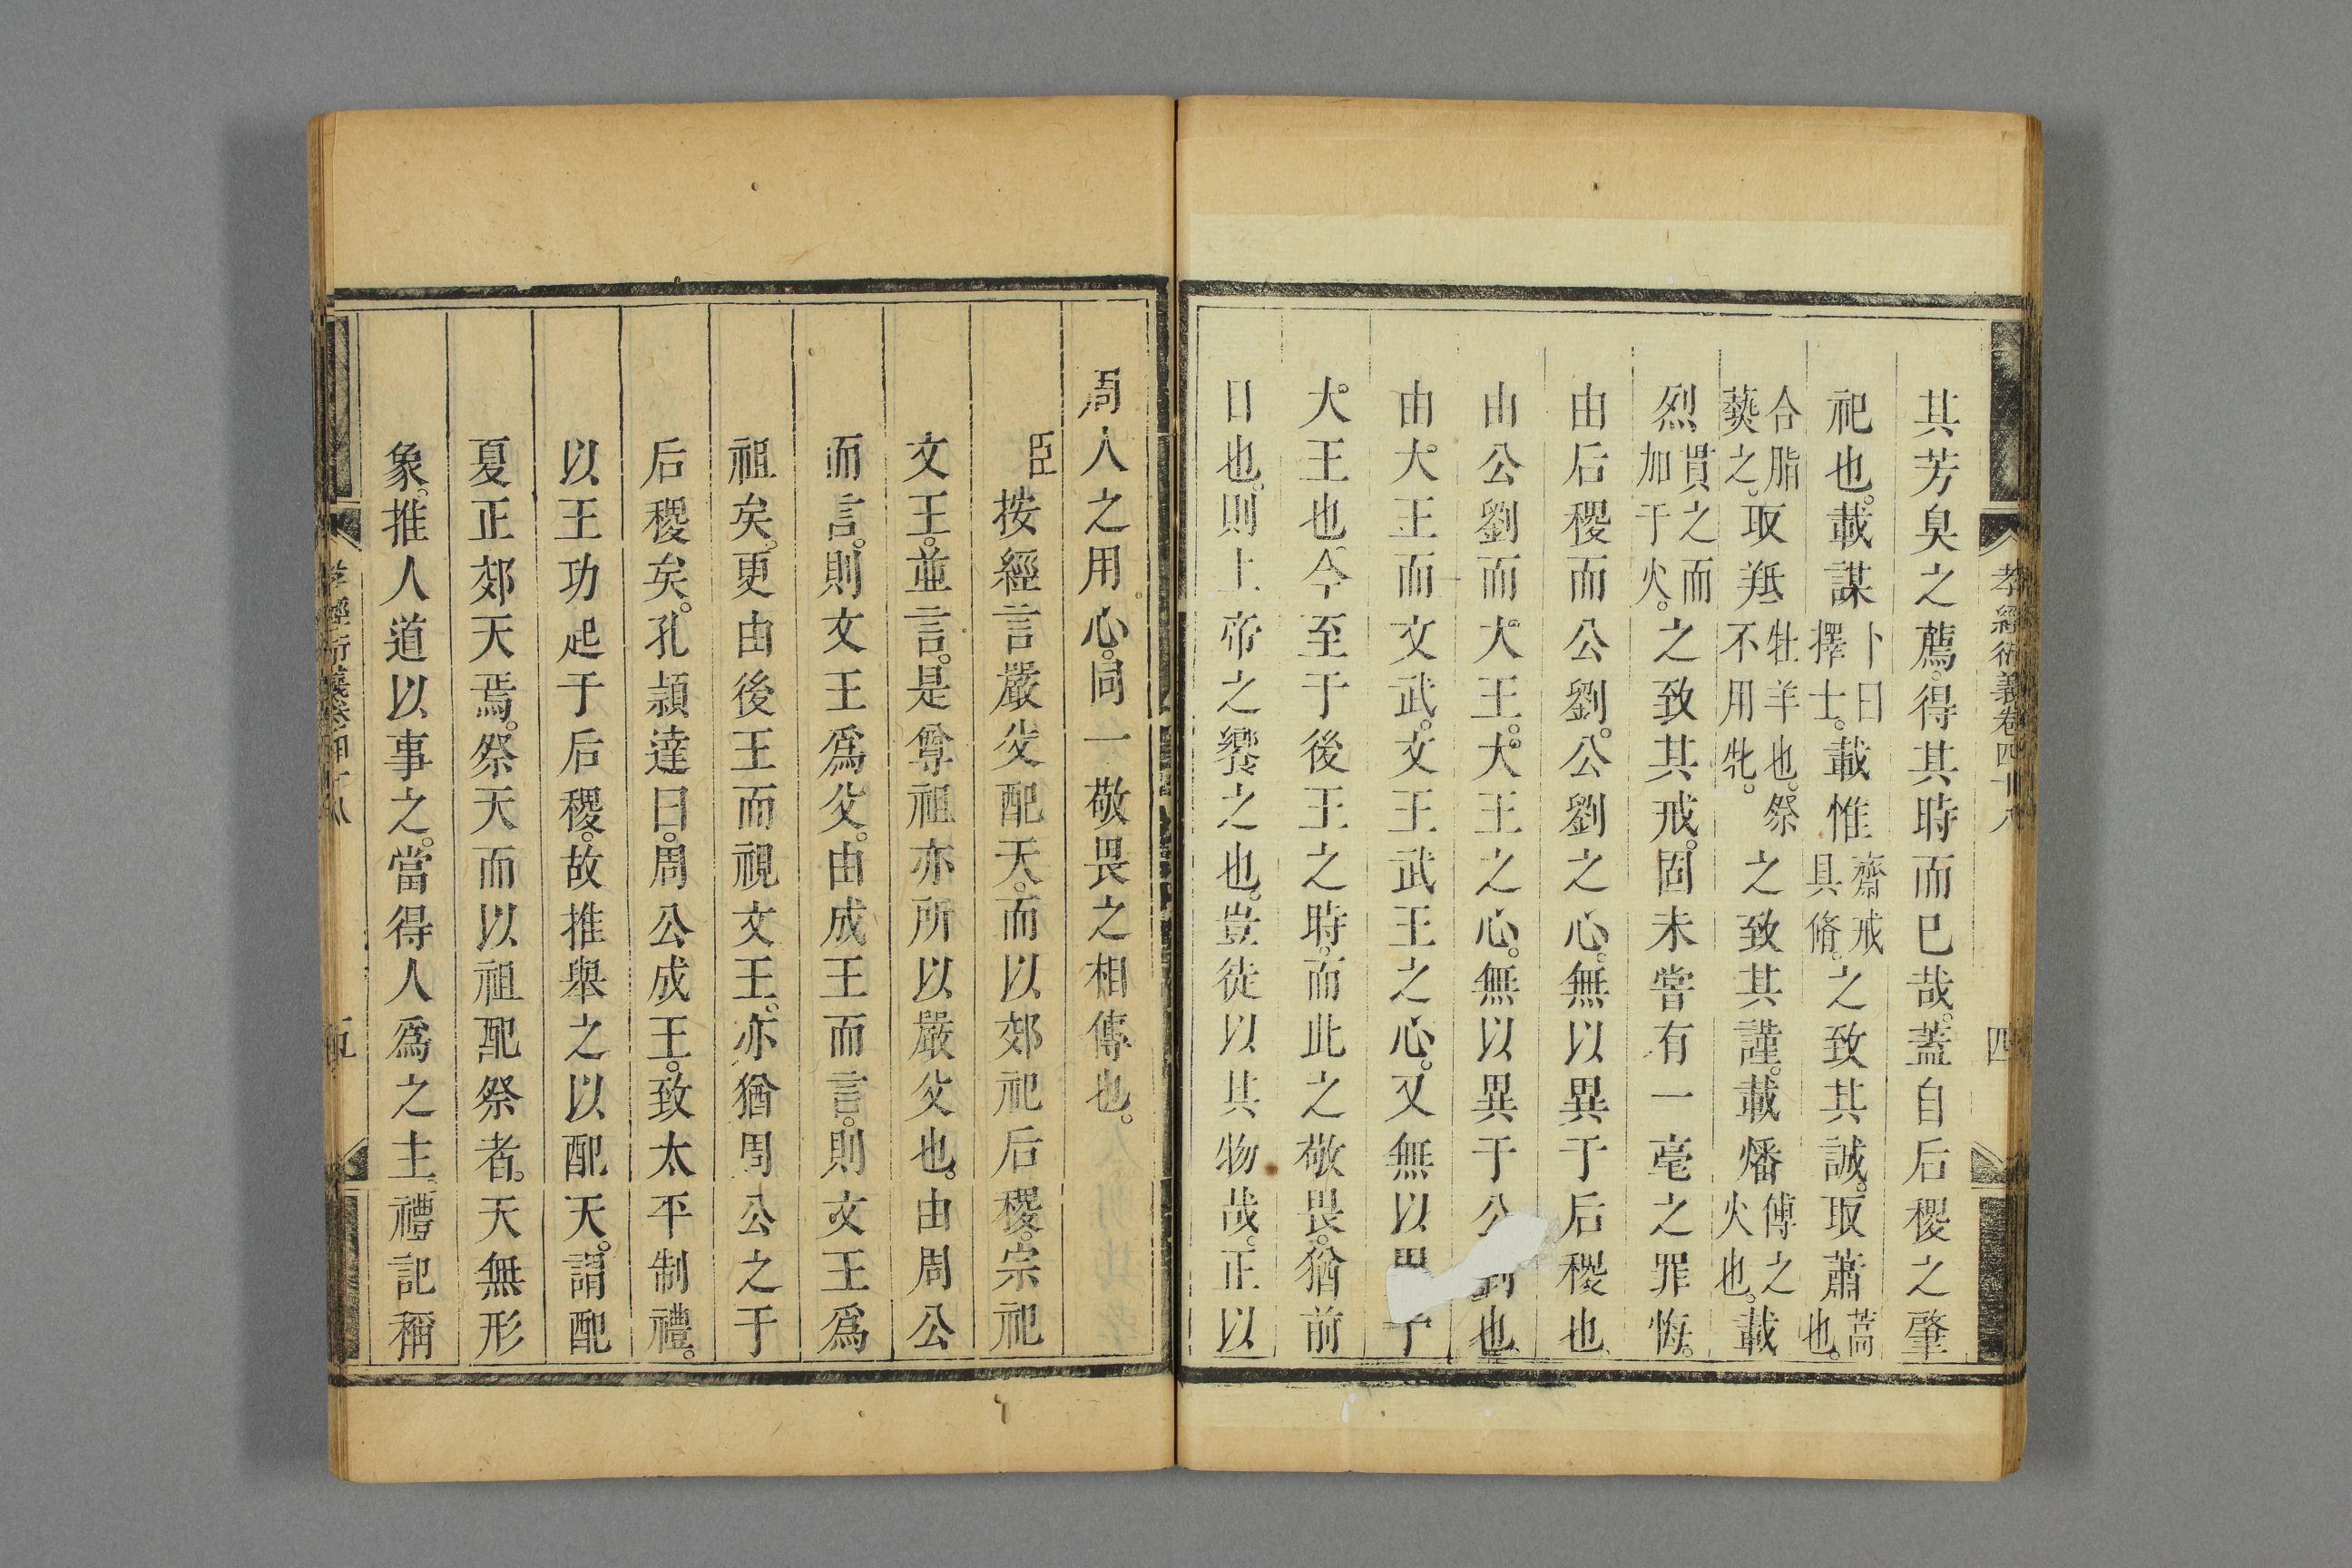 孝經衍義卷四十八　四
其芳臭之薦。得其時而已哉。蓋自后稷之肇
祀也。載謀卜日擇士。載惟齋戒具脩。之致其誠。取蕭蒿也。
合脂爇之。取羝牡羊也。祭不用牝。之致其謹。載燔傅之火也。載
烈貫之而加于火。之致其戒。固未嘗有一毫之罪悔。
由后稷而公劉。公劉之心。無以異于后稷也。
由公劉而大王。大王之心。無以異于公劉也。
由大王而文武。文王武王之心。又無以異于
大王也。今至于後王之時。而此之敬畏。猶前
日也。則上帝之饗之也。豈徒以其物哉。正以
周人之用心。同一敬畏之相傳也。
臣按經言嚴父配天。而以郊祀后稷。宗祀
文王。並言。是尊祖亦所以嚴父也。由周公
而言。則文王爲父。由成王而言。則文王爲
祖矣。更由後王而視文王。亦猶周公之于
后稷矣。孔頴達曰。周公成王。致太平制禮。
以王功起于后稷。故推舉之以配天。謂配
夏正郊天焉。祭天而以祖配祭者。天無形
象。推人道以事之。當得人爲之主。禮記稱
孝經衍義卷四十八　五